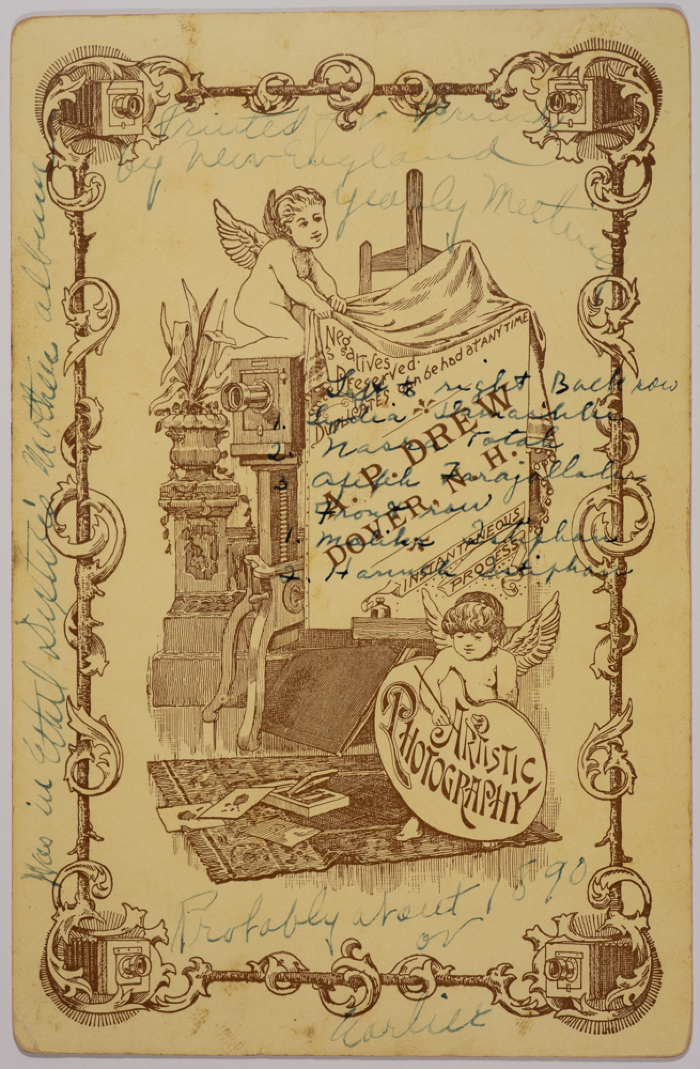 Printed for Friends
by New England
Yearly Meeting
Was in Ethel Mother's album
Negatives
Preserved.
Duplicates can be had at ANY TIME
A. P. DREW
DOVER, N. H.
INSTANTANEOUS
PROCESS
Left to right Back row
1. Lydia
2. Totah
3
Front row
1. Malika Istiphan
2. Hannah Istiphan
ARTISTIC
PHOTOGRAPHY
Probably about 1890
or
Earlier